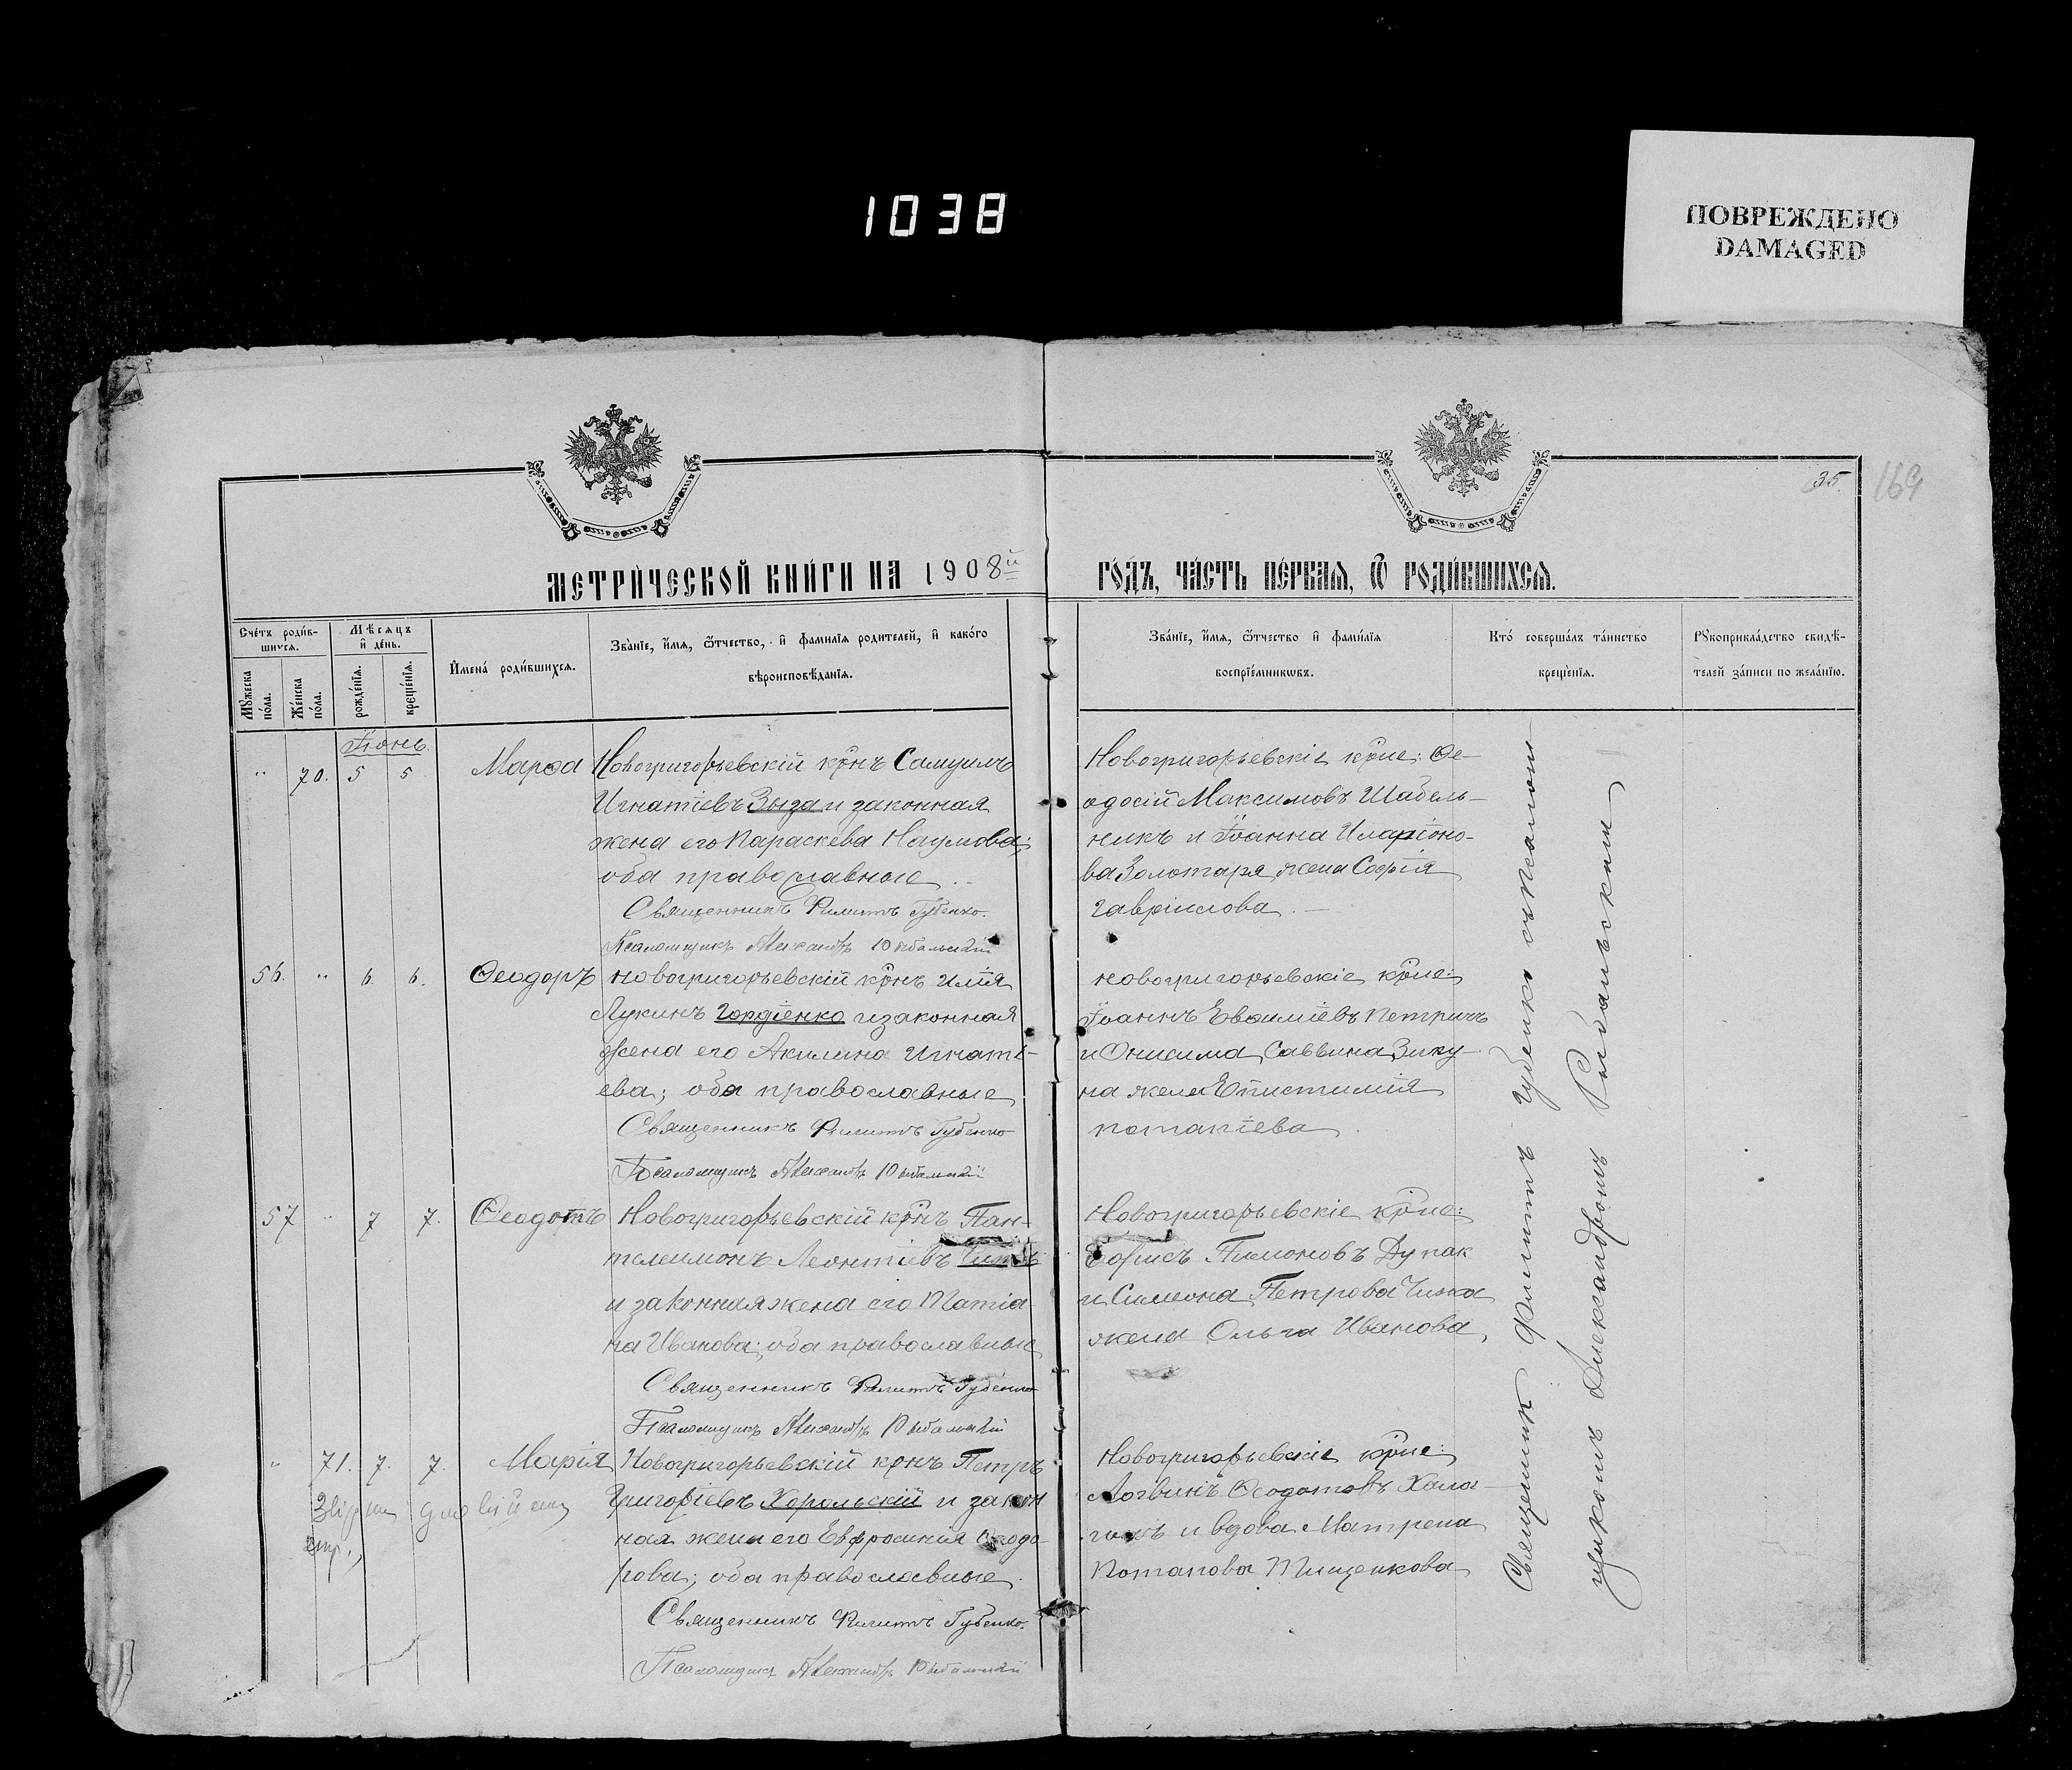 1038
ПОВРЕЖДЕНО
DAMAGED
35.
169
МЕТРИ́ЧЕСКОЙ КНИ́ГИ НА 1908й ГО́ДЪ, ЧА́СТЬ ПЕ́РВАЯ, Ѿ РОДИ́ВШИХСЯ.
Сче́тъ роди́в-
шихся.
Мѣсяцъ
и де́нь.
Му́жеска
по́ла.
Же́нска
по́ла.
рожде́нїя.
креще́нїя.
Имена́ роди́вшихся.
Зва́нїе, и́мя, ѻ́тчество, и фами́лїя родителей, и како́го
вѣроисповѣ́данїя.
Зва́нїе, и́мя, ѻ́тчество и фами́лїя
воспрїе́мникѡвъ.
Кто́ соверша́лъ та́инство
креще́нїя.
Рукоприкла́дство свидѣ́-
телей за́писи по жела́нїю.
Іюнь.
" 70. 5 5 Марѳа Новогригорьевскій крнъ Самуилъ
Игнатіевъ Зыза и законная
жена его Параскева Наумова;
оба православные.
Священникъ Филиппъ Губенко.
Псаломщикъ Александръ Рыбальскій
Новогригорьевскіе крне: Ѳе-
одосій Максимовъ Шабель-
никъ и Іоанна Иларіоно-
ва Золотаря жена Софія
Гавріилова.
56. " 6. 6. Ѳеодоръ Новогригорьевскій крнъ Илія
Лукинъ Гордіенко и законная
жена его Акилина Игнать-
ева; оба православные
Священникъ Филиппъ Губенко
Псаломщикъ Александръ Рыбальскій
Новогригорьевскіе крне:
Іоаннъ Евѳиміевъ Петричъ
и Онисима Саввина Зику-
на жена Епистимія
Потапіева
57 " 7 7. Ѳеодотъ Новогригорьевскій крнъ Пан-
телеимонъ Леонтіевъ
и законная жена его Татіа
на Иванова; оба православные
Священникъ Филиппъ Губенко
Псаломщикъ Александръ Рыбальскій
Новогригорьевскіе крне:
Борисъ Пимоновъ Дупак
и Симеона Петрова Чижа
жена Ольга Иванова,
" 71. 7. 7. Марія Новогригорьевскій крнъ Петръ
Григоріевъ Хорольскій и закон
ная жена его Евфросинія Ѳеодо-
рова; оба православные.
Священникъ Филиппъ Губенко.
Псаломщикъ Александръ Рыбальскій
Новогригорьевскіе крне:
Логвинъ Ѳеодотовъ
и вдова Матрена
Потапова Тищенкова
Священникъ Филиппъ Губенко съ псаломщ
щикомъ Александромъ Рыбальскимъ